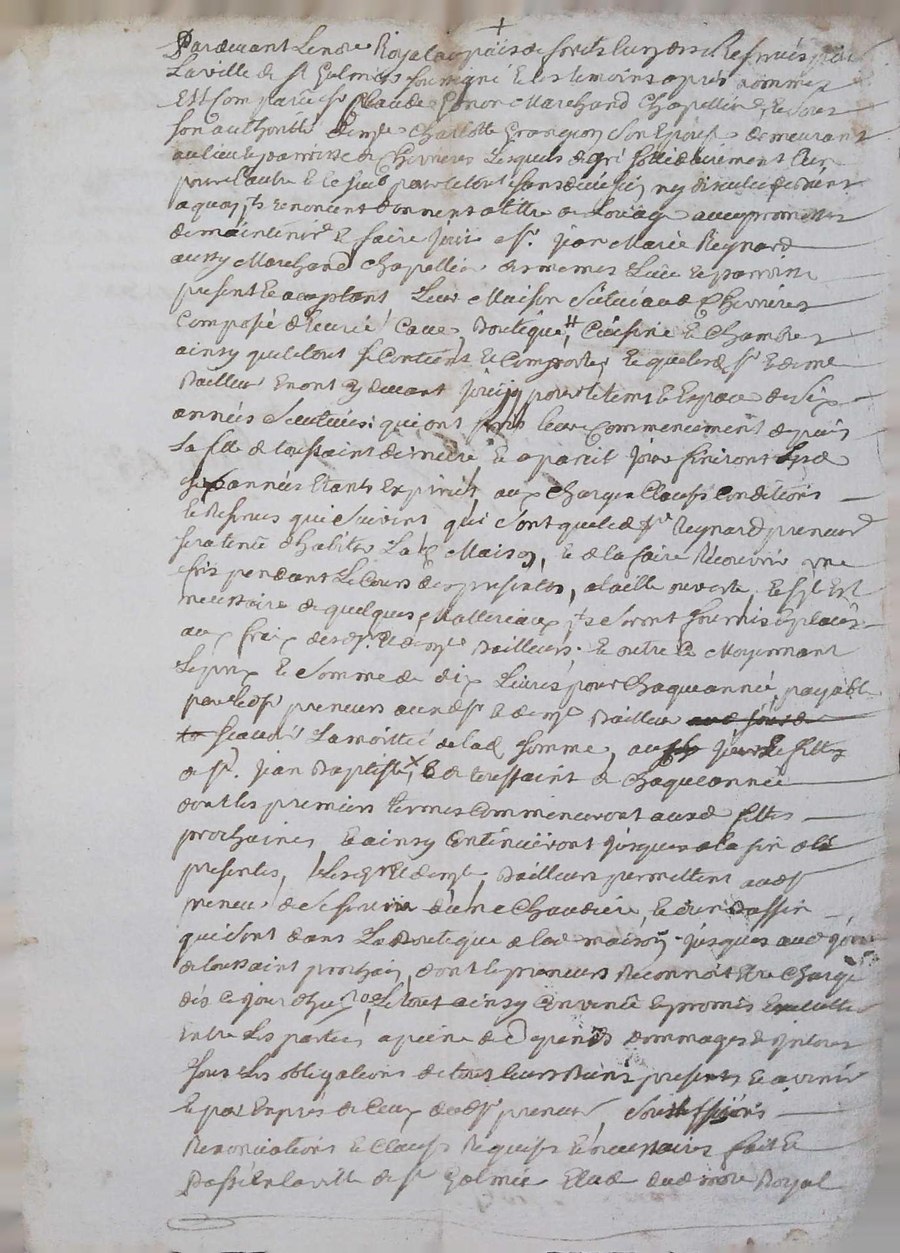 +
Pardevant Le nore Royal au païs de forets
La ville de st Galmier soussigné et les temoins après nommés
Est Comparu sr Claude Marchand Chapellier, et de sous
son authorité dme Charlotte Grangeon son Epouse demeurant
au lieu et parroisse de Chevrieres Lesquels de gré solidairement l'un
pour l'autre et le seul pour le tout sans division ny discution de biens
a quoy ils renoncent donnent a tittre de Loüage avec promesse
de maintenir et faire joüir a sr. jean Marie Reynard
aussy Marchand Chapellier du memes Lieu et parroisse
present et acceptant Leur Maison Scituée aud Chevrieres
Composée d'ecurie Cave, Boutique # Cuisine et Chambres
ainsy que le tout se Contient et Comporte, et que lesd sr et dme
Bailleur en ont cy devant joüy pour le tems et Espace de six
années qui ont pris leur Commencement depuis
La fête de toussaint derniere et a pareil jour finiront Lesd
six années Etants Expirées aux Charges Clauses Conditions
et Reserves qui Suivent qui sont que led sr Reynard preneur
sera tenu d'habiter Lad Maison, et de la faire Recouvrir une
fois pendant Le Cours des presentes, a taille ouverte, et s'il Est
necessaire de quelques Matteriaux ils seront fournis et placés
aux fraix desd sr. et dme Bailleurs. et outre ce Moyennant
Le prix et Somme de dix Livres pour Chaque année, payable
par led sr preneur auxd sr et dme Bailleur
scavoir La moittié de lad somme, aux jour et fêtte
de st. jean Baptiste x et de toussaint de Chaque année
dont les premiers termes Commenceront auxd fêttes
prochaines, et ainsy Continüeront jusques a la fin des
presentes, Lesd sr et dme Bailleurs permettent aud sr
preneur de se servir d'une Chaudiere et d'un Bassin
qui sont dans La Boutique de lad maison jusques aud jour
de toussaint prochain, dont le preneur Reconnoit Etre Chargé
dès ce jourd'huy, Le tout ainsy Convenu et promis Executter
Entre Les parties a peine de Depends dommages et jnterets
sous Les obligations de tous leurs Biens presents et avenir
et par Exprès de Ceux dud sr preneur,
Renonciations et Clauses Requises et necessaires fait et
Passé En la ville de st Galmier Etude dud nore Royal